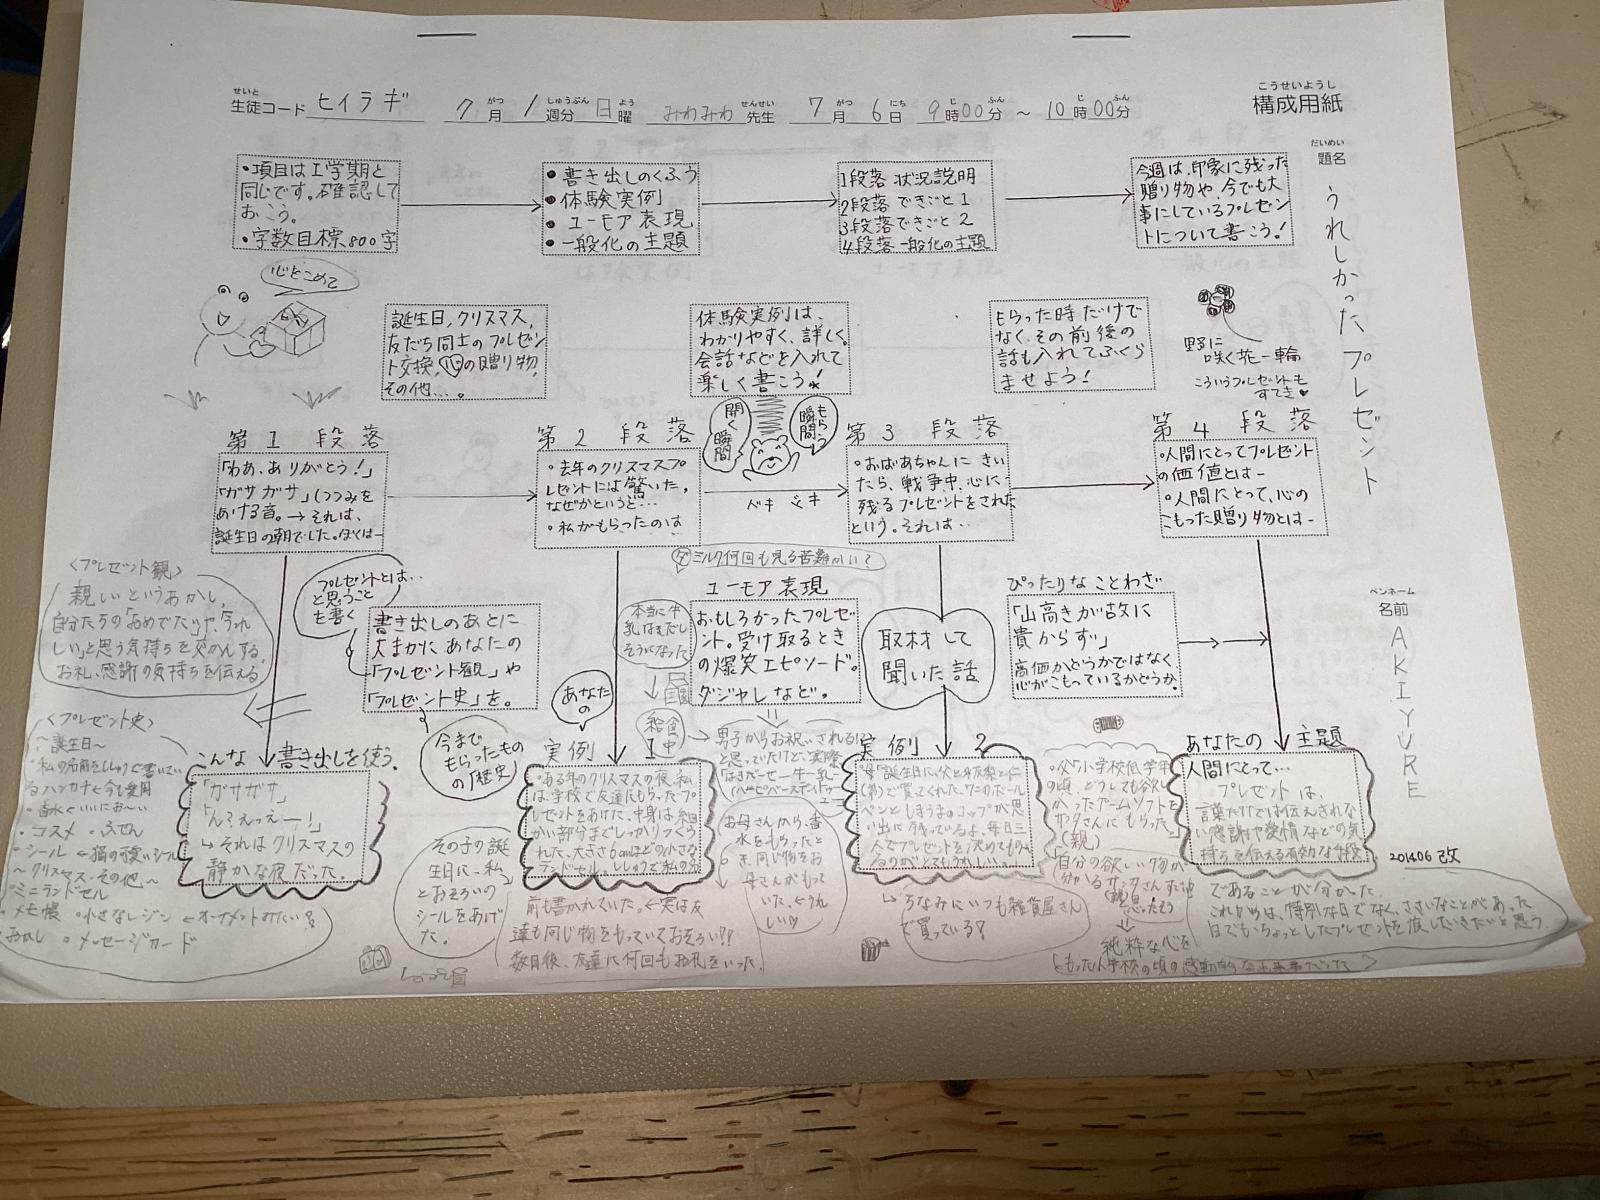 せいと
生徒コード ヒイラギ 7月 がつ 1週分 しゅうぶん 日曜 よう みわみわ先生 せんせい 7月 がつ 6日 にち 9時 じ 00分 ふん ～ 10時 じ 00分 ふん
こうせいようし
構成用紙
だいめい
題名
うれしかったプレゼント
ペンネーム
名前
AKIYURE
・項目は1学期と
同じです。確認して
おこう。
・字数目標800字
・書き出しのくふう
・体験実例
・ユーモア表現
・一般化の主題
1段落 状況説明
2段落 できごと1
3段落 できごと2
4段落 一般化の主題
今週は、印象に残った
贈り物や、今でも大
事にしているプレゼン
トについて書こう!
心をこめて
誕生日,クリスマス,
友だち同士のプレゼン
ト交換, 心の贈り物,
その他…。
体験実例は、
わかりやすく、詳しく。
会話などを入れて
楽しく書こう!
もらった時だけで
なく、その前後の
話も入れてふくら
ませよう!
野に
咲く花一輪
こういうプレゼントも
すてき♥
第1段落
「わあ、ありがとう!」
「ガサガサ」(つつみを
あける音。→それは、
誕生日の朝でした。ぼくは―
第2段落
・去年のクリスマスプ
レゼントには驚いた。
なぜかというと…
・私がもらったのは
開く瞬間
もらう瞬間
ドキドキ
第3段落
・おばあちゃんにきい
たら、戦争中、心に
残るプレゼントをされた
という。それは…
第4段落
・人間にとってプレゼント
の価値とは―
・人間にとって、心の
こもった贈り物とは―
<プレゼント観>
親しいというあかし,
自分たちの「おめでたい」や、「うれ
しい」と思う気持ちを交かんする。
お礼、感謝の気持ちを伝える
プレゼントとは…
と思うこと
を書く
書き出しのあとに
大まかにあなたの
「プレゼント観」や
「プレゼント史」を。
今まで
もらったもの
の「歴史」
ミルク何回も見る苦難がいて
本当に牛
乳はきだし
そうになった
給食中
ユーモア表現
おもしろかったプレゼ
ント。受け取るとき
の爆笑エピソード。
ダジャレなど。
男子からお祝いされる!?
と思っていたけど、実際
取材して
聞いた話
ぴったりなことわざ
「山高きが故に
貴からず」
高価かどうかではなく
心がこもっているかどうか。
<プレゼント史>
～誕生日～
・コスメ ・ふせん
・シール ←猫の可愛いシール
～クリスマス・その他～
・ミニランドセル
・メモ帳 ・小さなレジン ←オーナメントみたい!?
・メッセージカード
こんな書き出しを使う。
「ガサガサ」
「ん? えっえー!」
↳それはクリスマスの
静かな夜だった。
あなたの
実例1
・ある年のクリスマスの夜、私
は、学校で友達にもらったプ
レゼントをあけた。中身は、細
かい部分までしっかりつくら
れた、大きさ6cmほどの小さな
前も書かれていた。←実は友
達も同じ物をもっていておそろい!!
数日後、友達に何回もお礼をいった。
その子の誕
生日に、私
とおそろいの
シールをあげ
た。
お母さんから、香
水をもらったと
き、同じ物をお
母さんがもって
いた。←うれ
しい♡
実例2
ペンとしろうまのコップが思
い出に残っているよ、毎日三
人でプレゼントを決めてもら
↳ちなみにいつも雑貨屋さん
で買っている?
・父「小学校低学年
の頃、どうしても欲し
かったゲームソフトを
サンタさんにもらった。」
(親)
「自分の欲しい物が
分かるサンタさんすげー
純粋な心を
もった小学校の頃の感動的な出来事だった
あなたの主題
人間にとって…
プレゼントは、
言葉だけでは伝えきれな
い感謝や愛情などの気
持ちを伝える有効な手段
であることが分かった。
これからは、特別な日でなく、ささいなことがあった
日でも、ちょっとしたプレゼントを渡していきたいと思う。
201406改